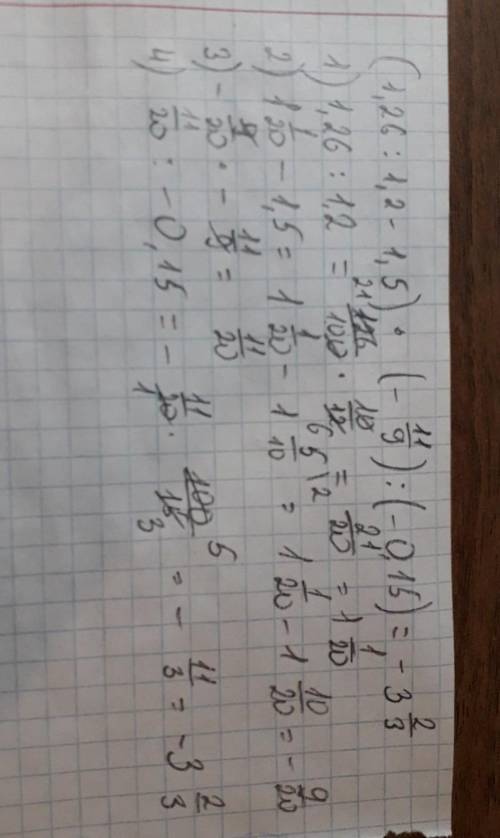 (1,26 : 1,2 - 1,5) · (- 11/9) : (-0,15) = - 3 2/3
1) 1,26 : 1,2 = 126/100 · 10/12 = 21/20 = 1 1/20
2) 1 1/20 - 1,5 = 1 1/20 - 1 5/10 = 1 1/20 - 1 10/20 = - 9/20
3) - 9/20 · - 11/9 = 11/20
4) 11/20 : - 0,15 = - 11/20 · 100/15 = - 11/3 = -3 2/3